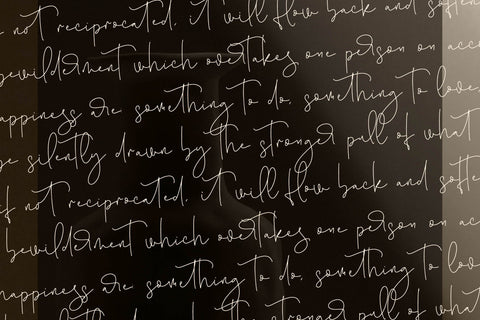 not reciprocated, it will flow back and soften
bewilderment which overtakes one person on acc
appiness are something to do, something to love,
be silently drawn by the stronger pull of what
if not reciprocated, it will flow back and softe
bewilderment which overtakes one person on acc
happiness are something to do, something to lov
silently drawn by the stronger pull of what